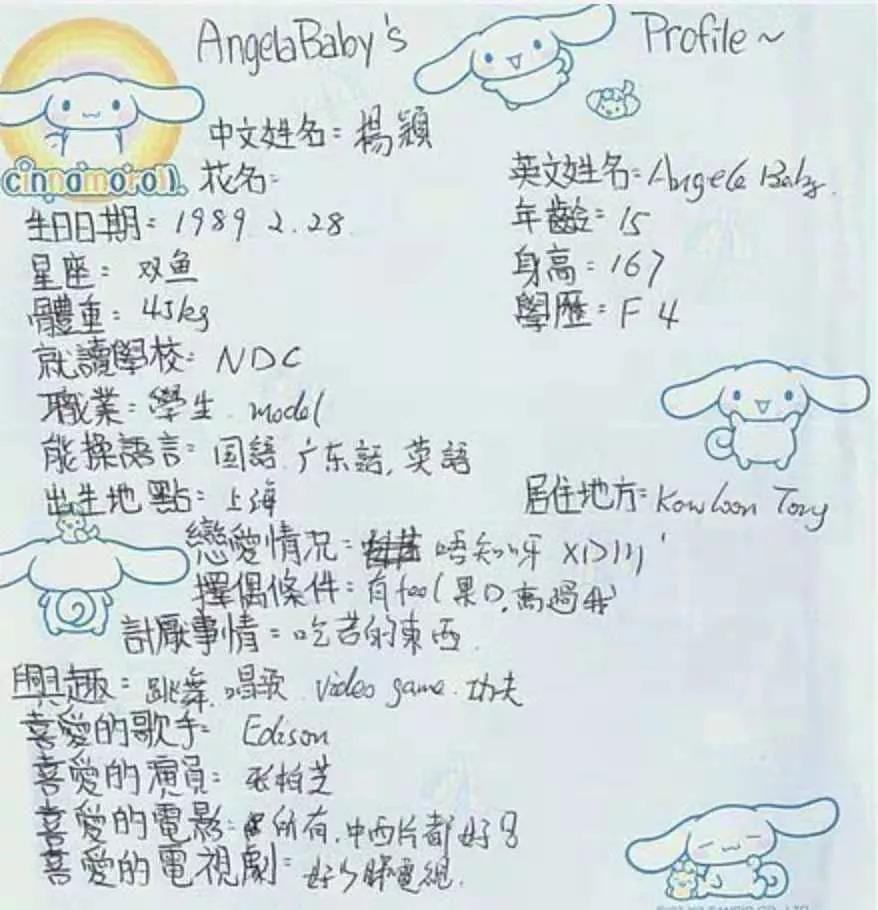 AngelaBaby's Profile~
cinnamoroll
中文姓名: 楊穎
花名:
英文姓名: Angela Baby.
生日日期: 1989. 2. 28
年齡: 15
星座: 双鱼
身高: 167
體重: 45kg
學歷: F 4
就讀學校: NDC
職業: 學生. model
能操語言: 国語. 广东語. 英語
出生地點: 上海
居住地方: Kowloon Tong
戀愛情況: 唔知呀 XD
擇偶條件: 有feel 果D, 高過我
討厭事情: 吃苦的東西.
興趣: 跳舞. 唱歌. video game. 功夫
喜愛的歌手: Edison
喜愛的演員: 张柏芝
喜愛的電影: 所有. 中西片都好
喜愛的電視劇: 好少睇電視.